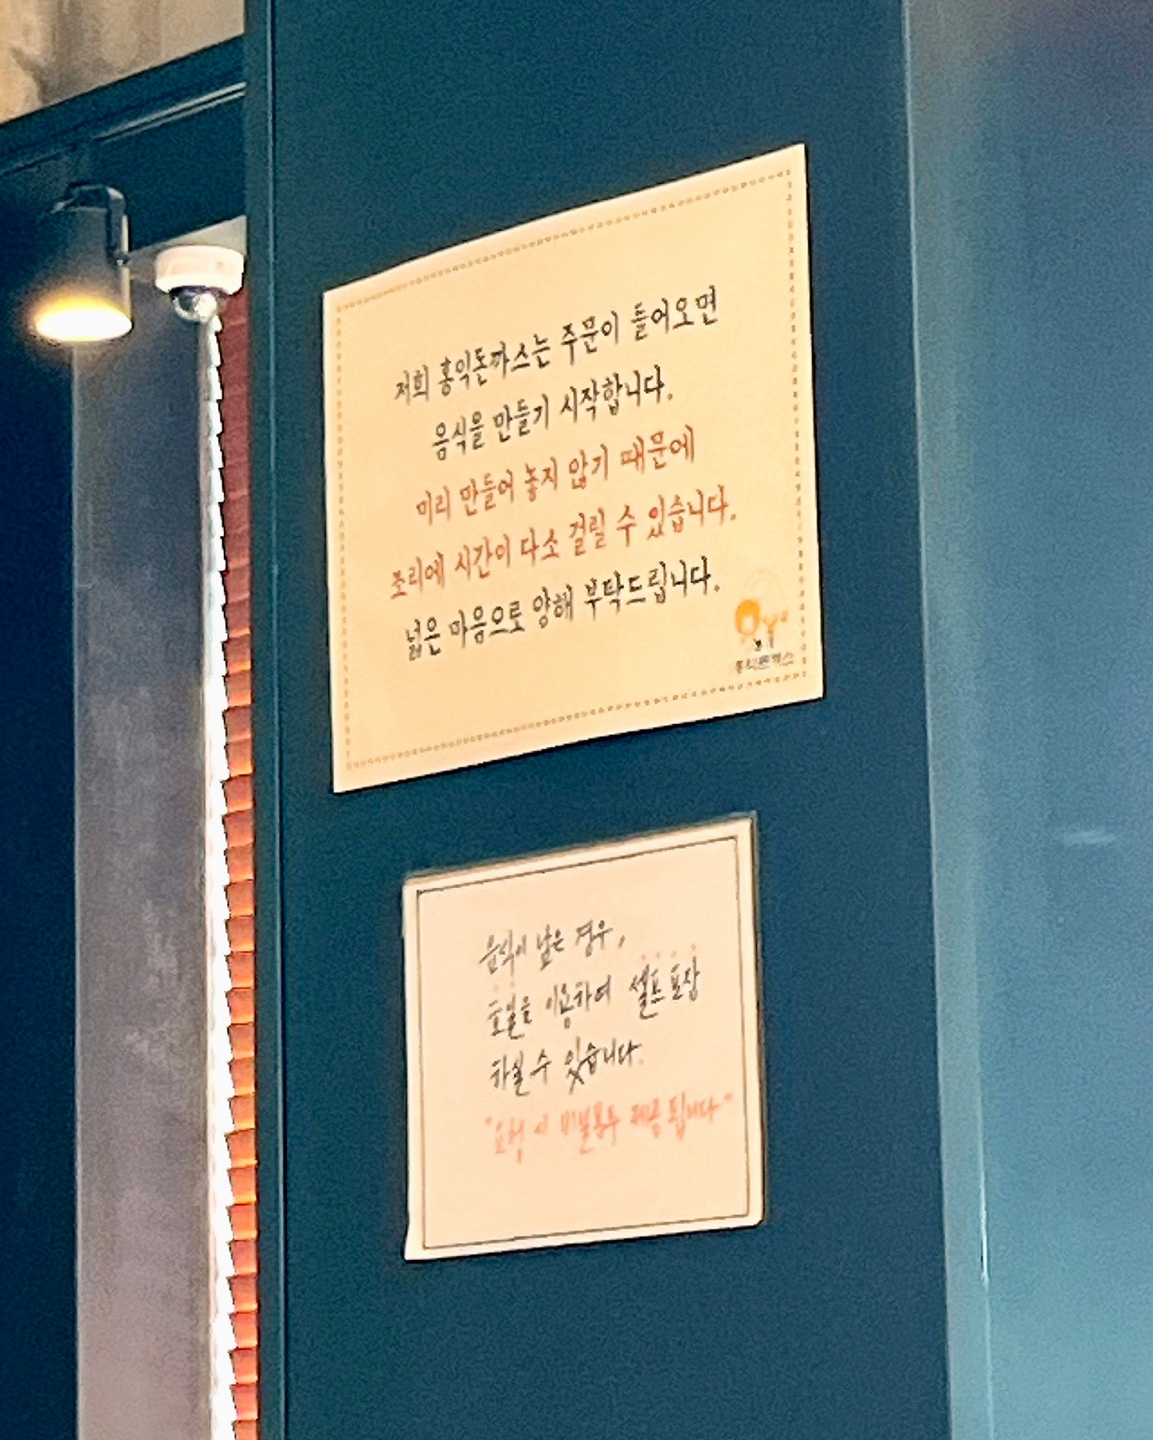 저희 홍익돈까스는 주문이 들어오면
음식을 만들기 시작합니다.
미리 만들어 놓지 않기 때문에
조리에 시간이 다소 걸릴 수 있습니다.
넓은 마음으로 양해 부탁드립니다.
홍익돈까스
음식이 남은 경우,
호일을 이용하여 셀프 포장
하실 수 있습니다.
"요청 시 비닐봉투 제공 됩니다"